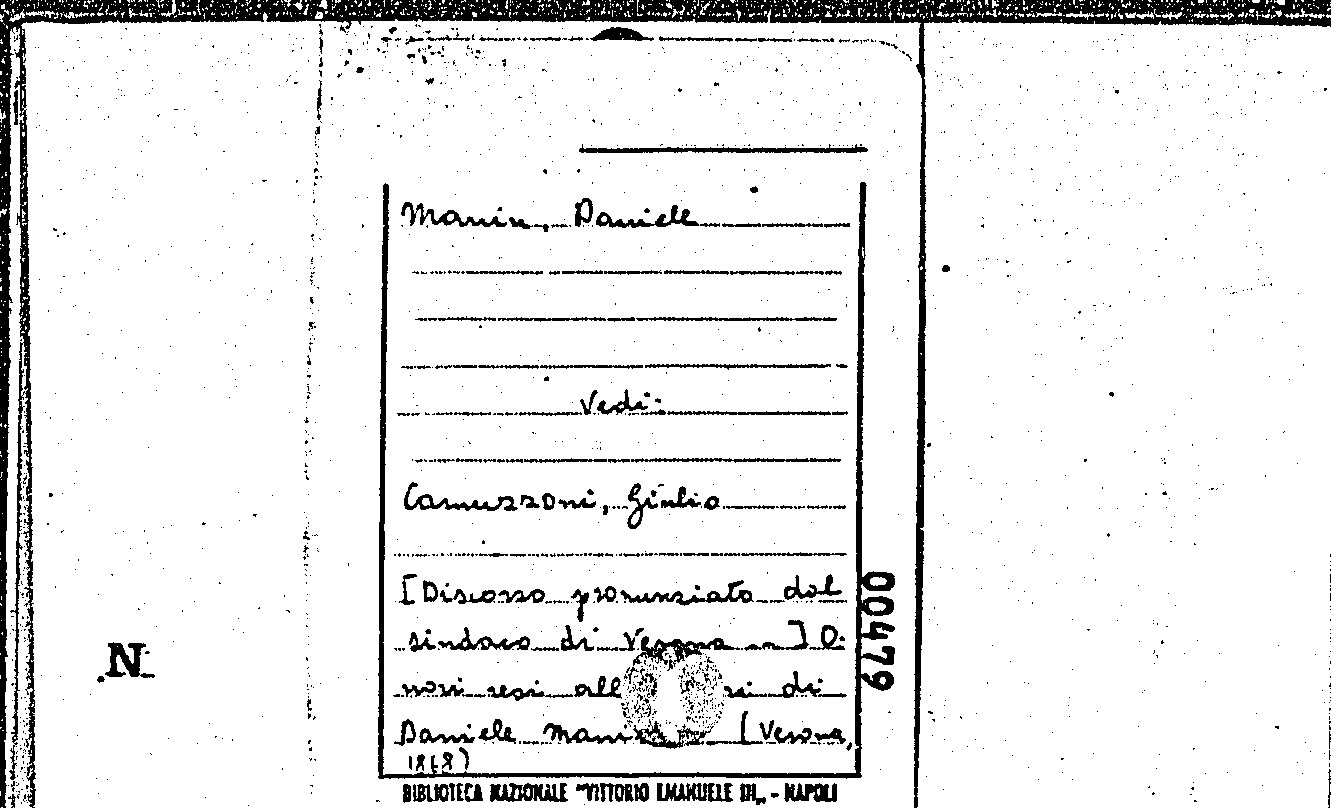 Manin, Daniele
Vedi:
Camuzzoni, Giulio
[Discorso pronunziato dal
sindaco di Verona in] O:
nori resi di
Daniele (Verona,
00479
N
BIBLIOTECA NAZIONALE "VITTORIO EMANUELE III„ - NAPOLI